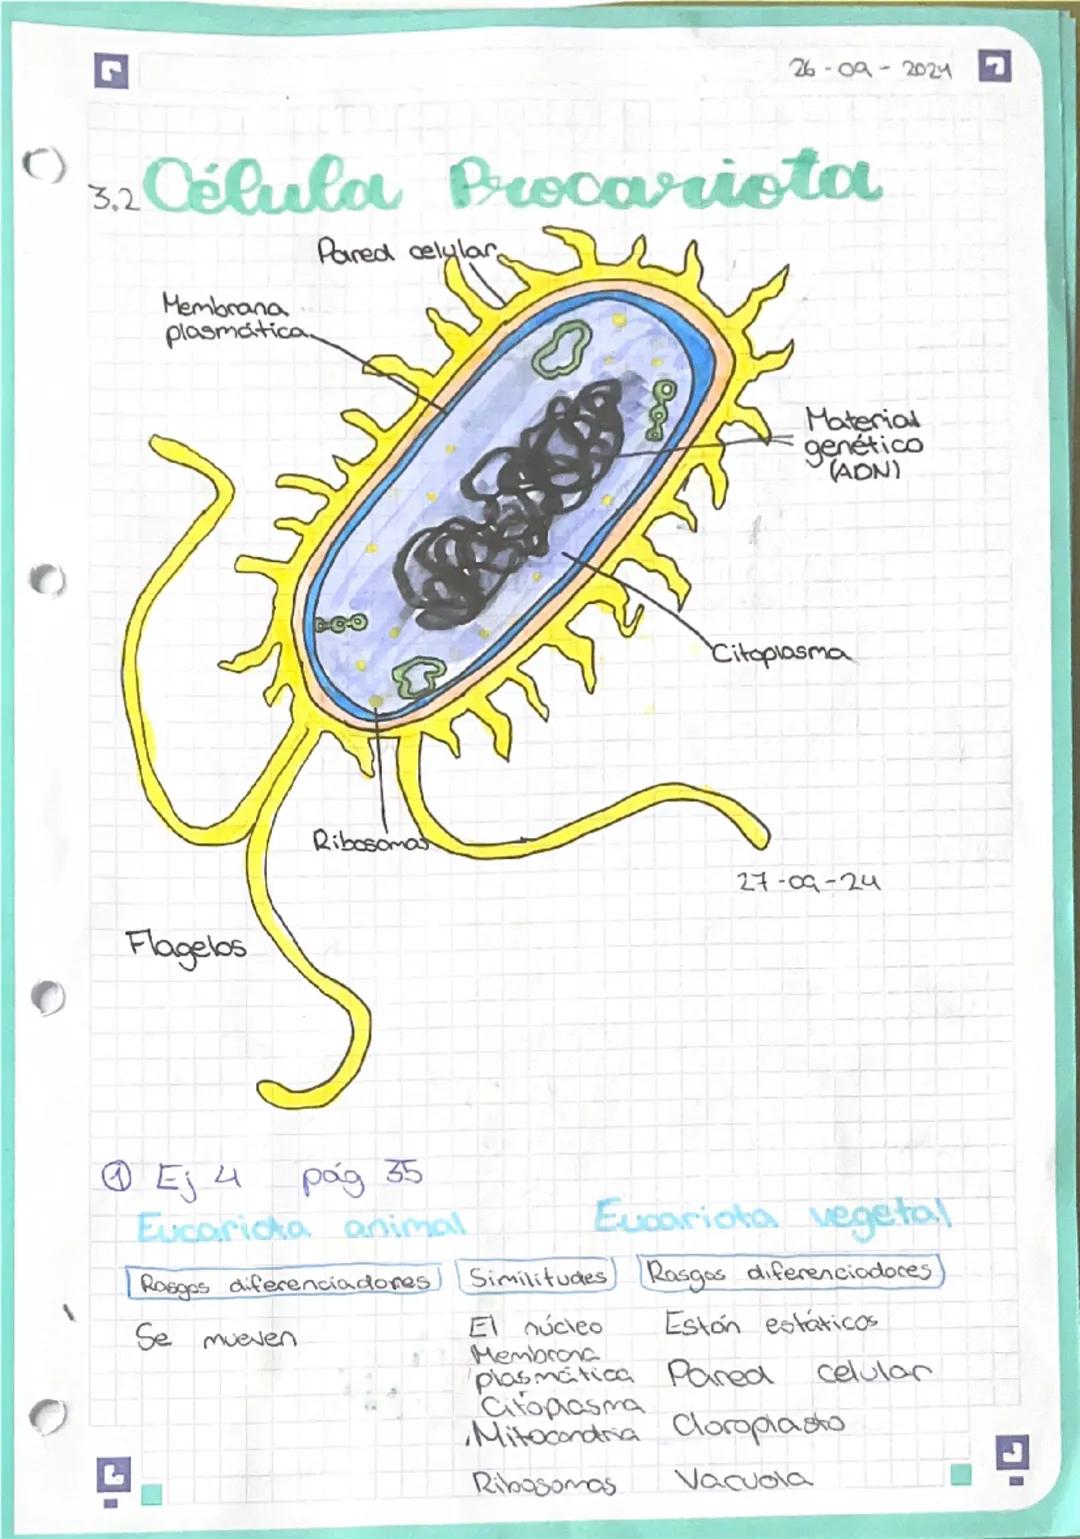 26-09-2024
3.2 Célula Procariota
Pared celular
Membrana
plasmática
Material
genético
(ADN)
Citoplasma
Ribosomas
27-09-24
Flagelos
① Ej 4 pág 35
Eucariota animal
Eucariota vegetal
Rasgos diferenciadores
Similitudes
Rasgos diferenciadores
Se mueven
El núcleo
Membrana
plasmática
Citoplasma
Mitocondria
Ribosomas
Están estáticos
Pared celular
Cloroplasto
Vacuola